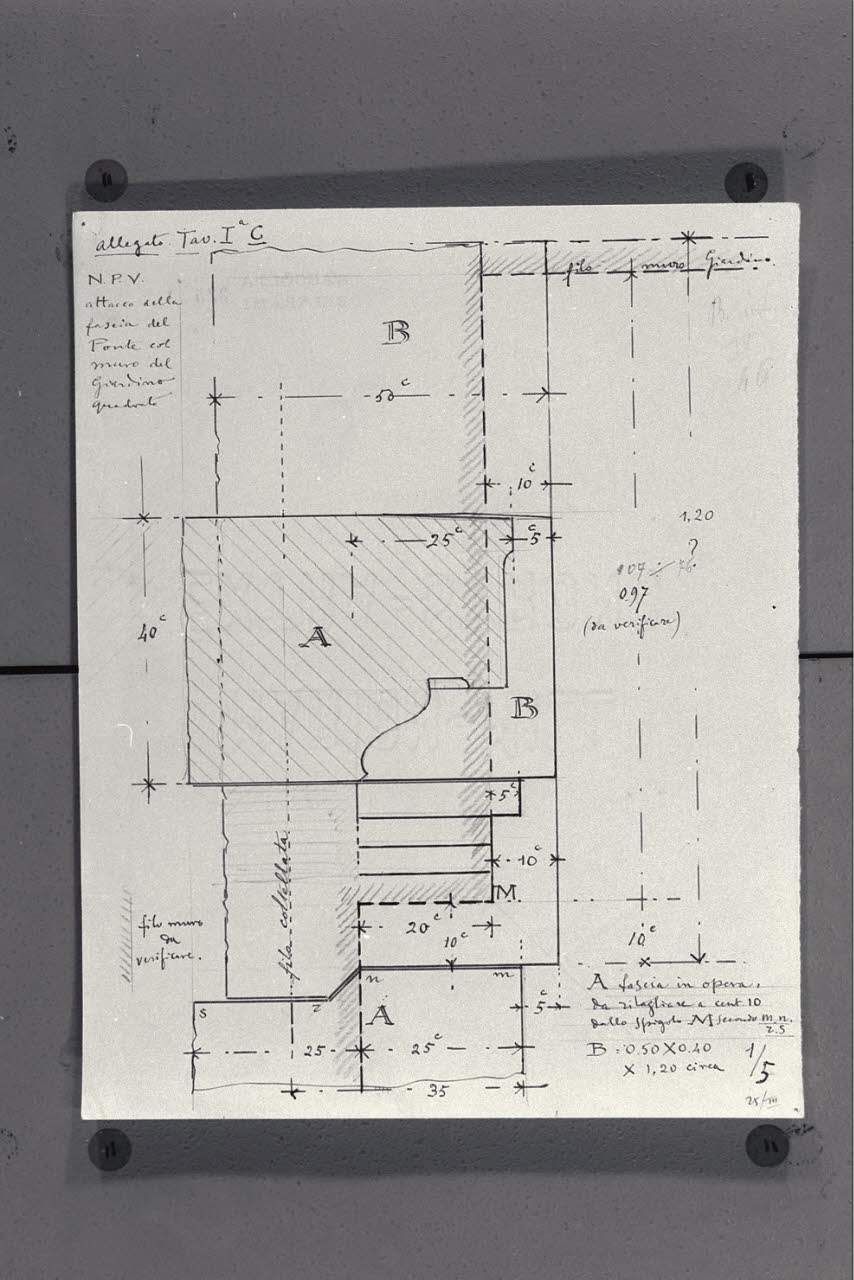 allegato Tav. Iª C
N.P.V.
attacco della
fascia del
Ponte col
muro del
Giardino
quadrato
filo muro Giardino.
B
50 c
10 c
25 c
5 c
40 c
A
1,20
?
0.97
(da verificare)
B
5 c
10 c
M.
20 c
10 c
10 c
fila coltellata
filo muro
da
verificare.
n
m
s
z
A
5 c
25
25 c
35
A fascia in opera,
da ritagliare a cent. 10
dallo spigolo M secondo m.n.
z.s
B = 0.50 X 0.40
X 1,20 circa
1/5
25/III